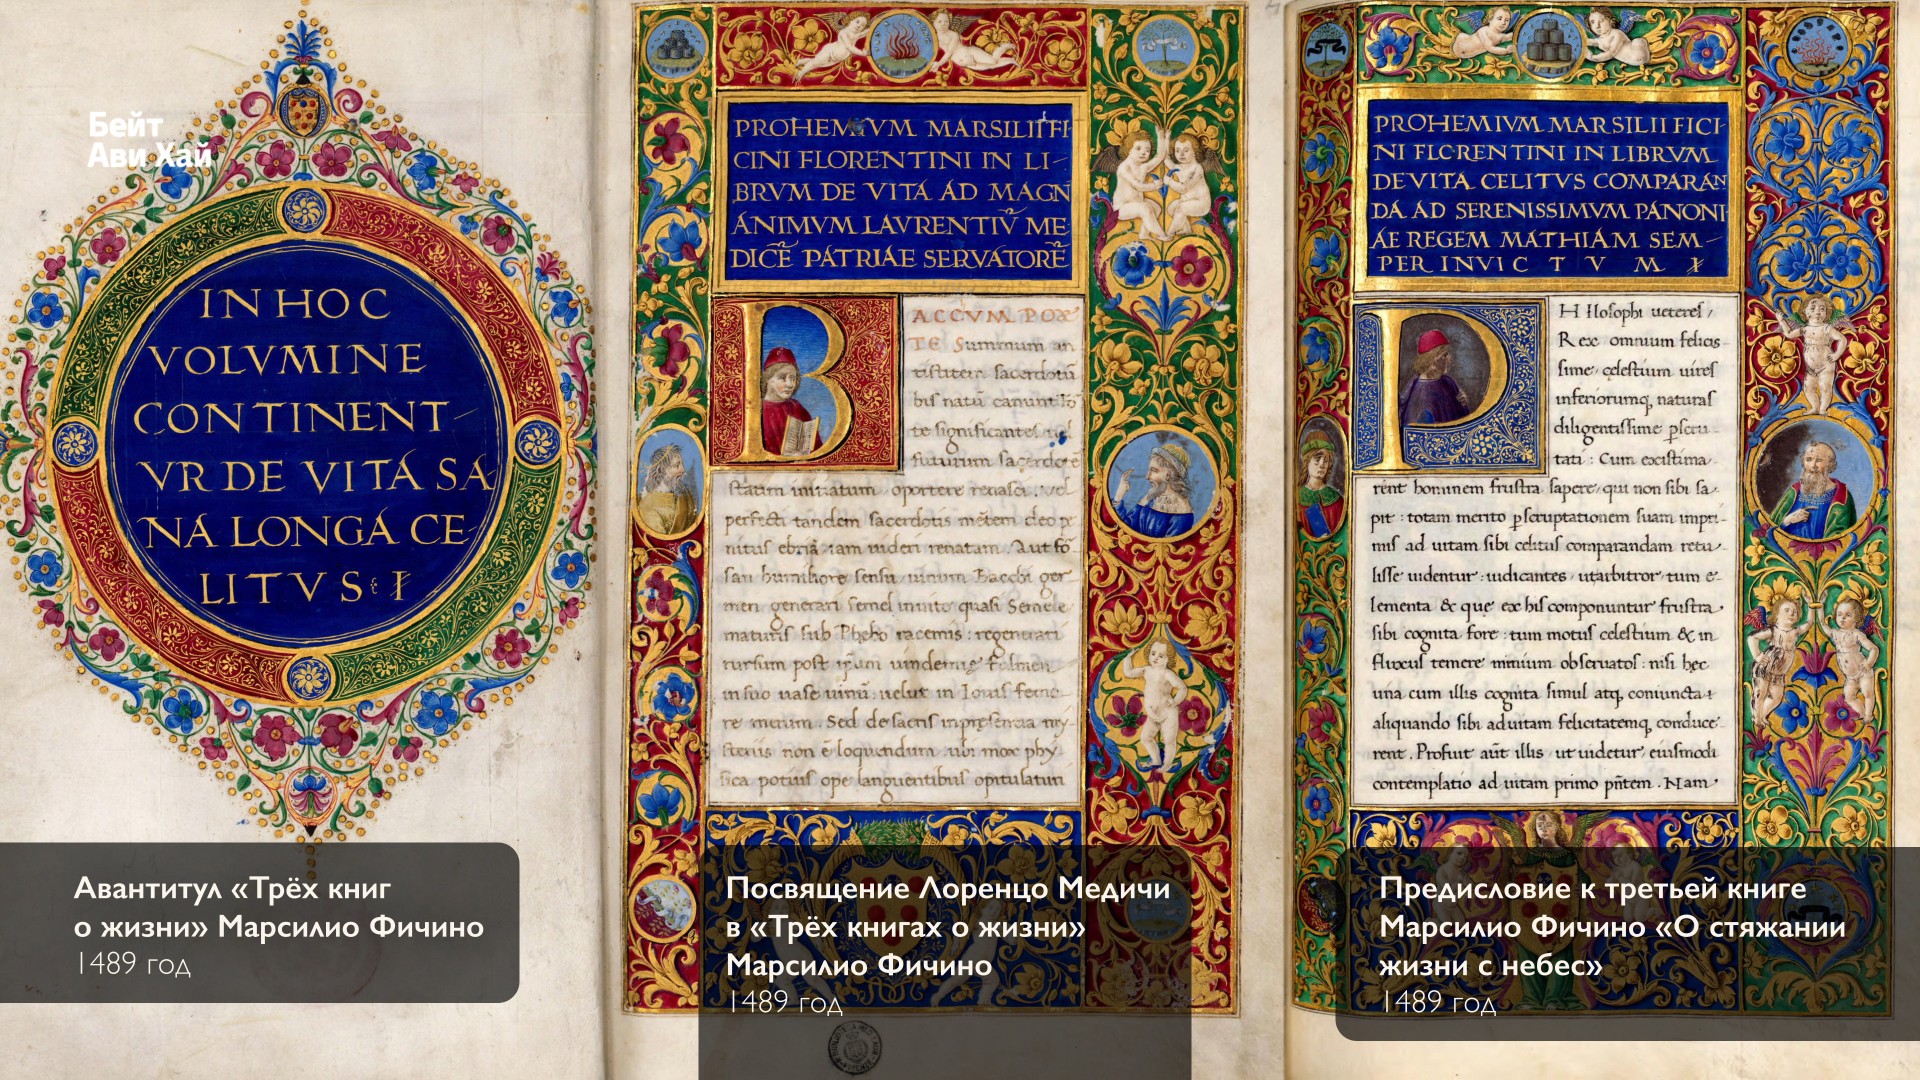 Бейт
Ави Хай
IN HOC
VOLVMINE
CONTINENT-
VR DE VITA SA
NA LONGA CE-
LITVS
PROHEMIVM MARSILII FI
CINI FLORENTINI IN LI-
BRVM DE VITA AD MAGN
ANIMVM LAVRENTIV̄ ME
DICĒ PATRIAE SERVATORĒ
B
ACCVM POE
TE Summum an
tistitem sacerdotū
bis natū canunt
te significantes
futurum sacerdotē
statim initiatum oportere renasci vel
perfecti tandem sacerdotis mētem deo pe
nitus ebriā iam videri renatam. Aut fo
san humiliore sensu vinum Bacchi ger
men generari semel in vite quasi Semele
maturis sub Phebo racemis: regenerari
rursum post ipsum vindemie fulmen
in suo vase vinū: velut in Iovis femo-
re merum. Sed de sacris in presentia my
steriis non ē loquendum ubi mox phy
sica potius ope languentibus opitulaturi
PROHEMIVM MARSILII FICI
NI FLORENTINI IN LIBRVM
DE VITA CELITVS COMPARAN
DA AD SERENISSIMVM PANONI
AE REGEM MATHIAM SEM-
PER INVICTVM
P
Hilosophi veteres,
Rex omnium felicis
sime, celestium vires
inferiorumq naturas
diligentissime pscru
tati: Cum existima-
rent hominem frustra sapere, qui non sibi sa-
pit: totam merito pscruptationem suam impri-
mis ad vitam sibi celitus comparandam retu-
lisse videntur: iudicantes, ut arbitror tum e-
lementa & que ex his componuntur frustra
sibi cognita fore: tum motus celestium & in
fluxus temere nimium observatos: nisi hec
una cum illis cognita simul atq coniuncta
aliquando sibi ad vitam felicitatemq conduce-
rent. Profuit aūt illis ut videtur eiusmodi
contemplatio ad vitam primo pn̄tem. Nam
Авантитул «Трёх книг
о жизни» Марсилио Фичино
1489 год
Посвящение Лоренцо Медичи
в «Трёх книгах о жизни»
Марсилио Фичино
1489 год
Предисловие к третьей книге
Марсилио Фичино «О стяжании
жизни с небес»
1489 год